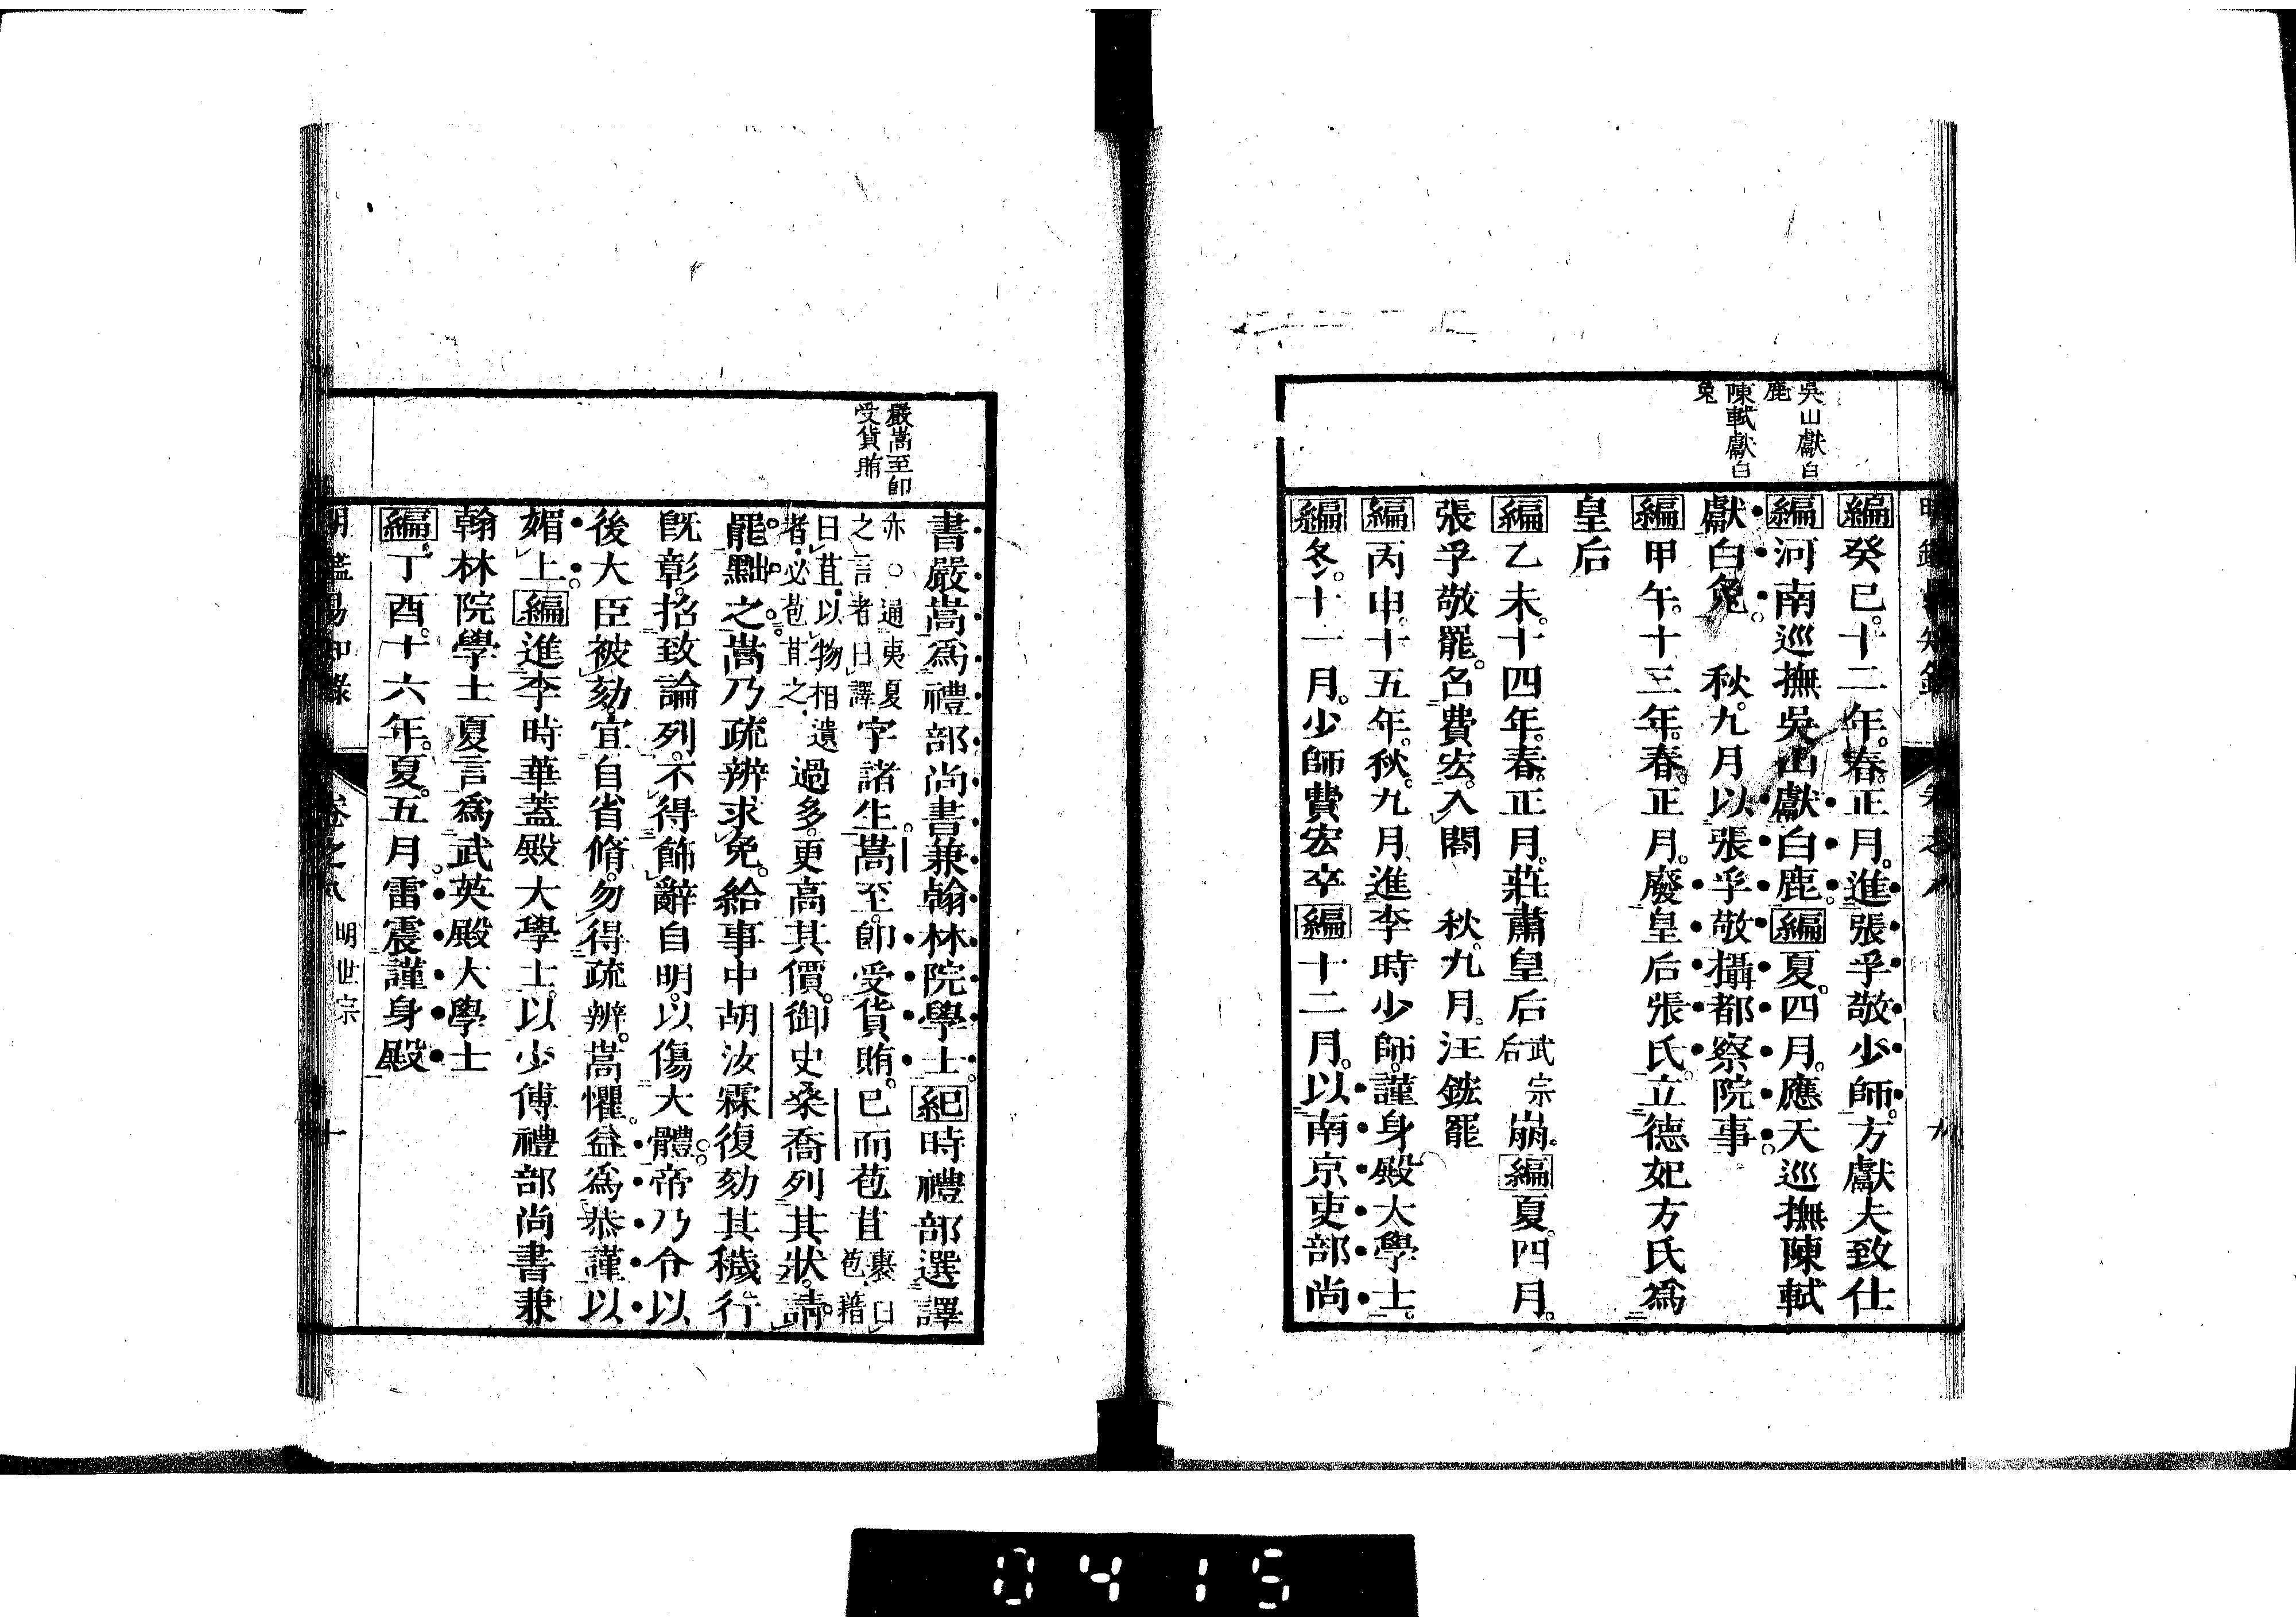 明鑑易知錄 卷之八 九
吳山獻白
鹿
陳軾獻白
兔
編癸巳。十二年。春。正月。進張孚敬少師。方獻夫致仕
編河南巡撫吳山獻白鹿。編夏。四月。應天巡撫陳軾
獻白兔。 秋。九月以張孚敬攝都察院事。
編甲午。十三年。春。正月。廢皇后張氏。立德妃方氏爲
皇后
編乙未。十四年。春。正月。莊肅皇后武宗后崩。編夏。四月。
張孚敬罷。名費宏。入閣 秋。九月。汪鋐罷
編丙申。十五年。秋。九月進李時少師。謹身殿大學士。
編冬。十一月。少師費宏卒編十二月。以南京吏部尚
嚴嵩至卽
受貨賄
書嚴嵩爲禮部尚書兼翰林院學士。紀時禮部選譯
亦。通夷夏之言者曰譯字諸生。嵩至。卽受貨賄。已而苞苴裹曰苞。藉
曰苴。以物相遺者。必苞苴之。過多。更高其價。御史桑喬列其狀。請
罷黜之。嵩乃疏辨求免。給事中胡汝霖復劾其穢行
旣彰。招致論列。不得飾辭自明。以傷大體。帝乃令以
後大臣被劾。宜自省脩。勿得疏辨。嵩懼。益爲恭謹以
媚上。編進李時華蓋殿大學士。以少傅禮部尚書兼
翰林院學士夏言爲武英殿大學士
編丁酉。十六年。夏。五月。雷震謹身殿
明鑑易知錄 卷之八 明世宗 十
0415